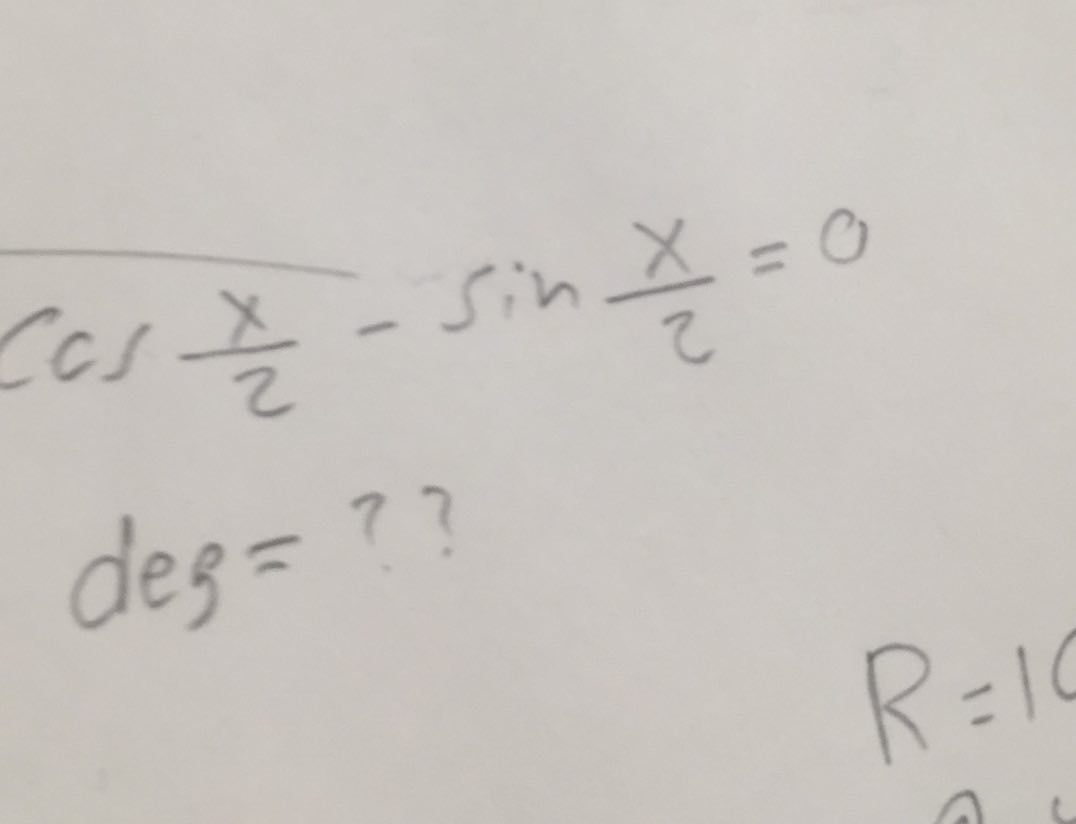 Cos x/2 - sin x/2 = 0
deg = ??
R = 10